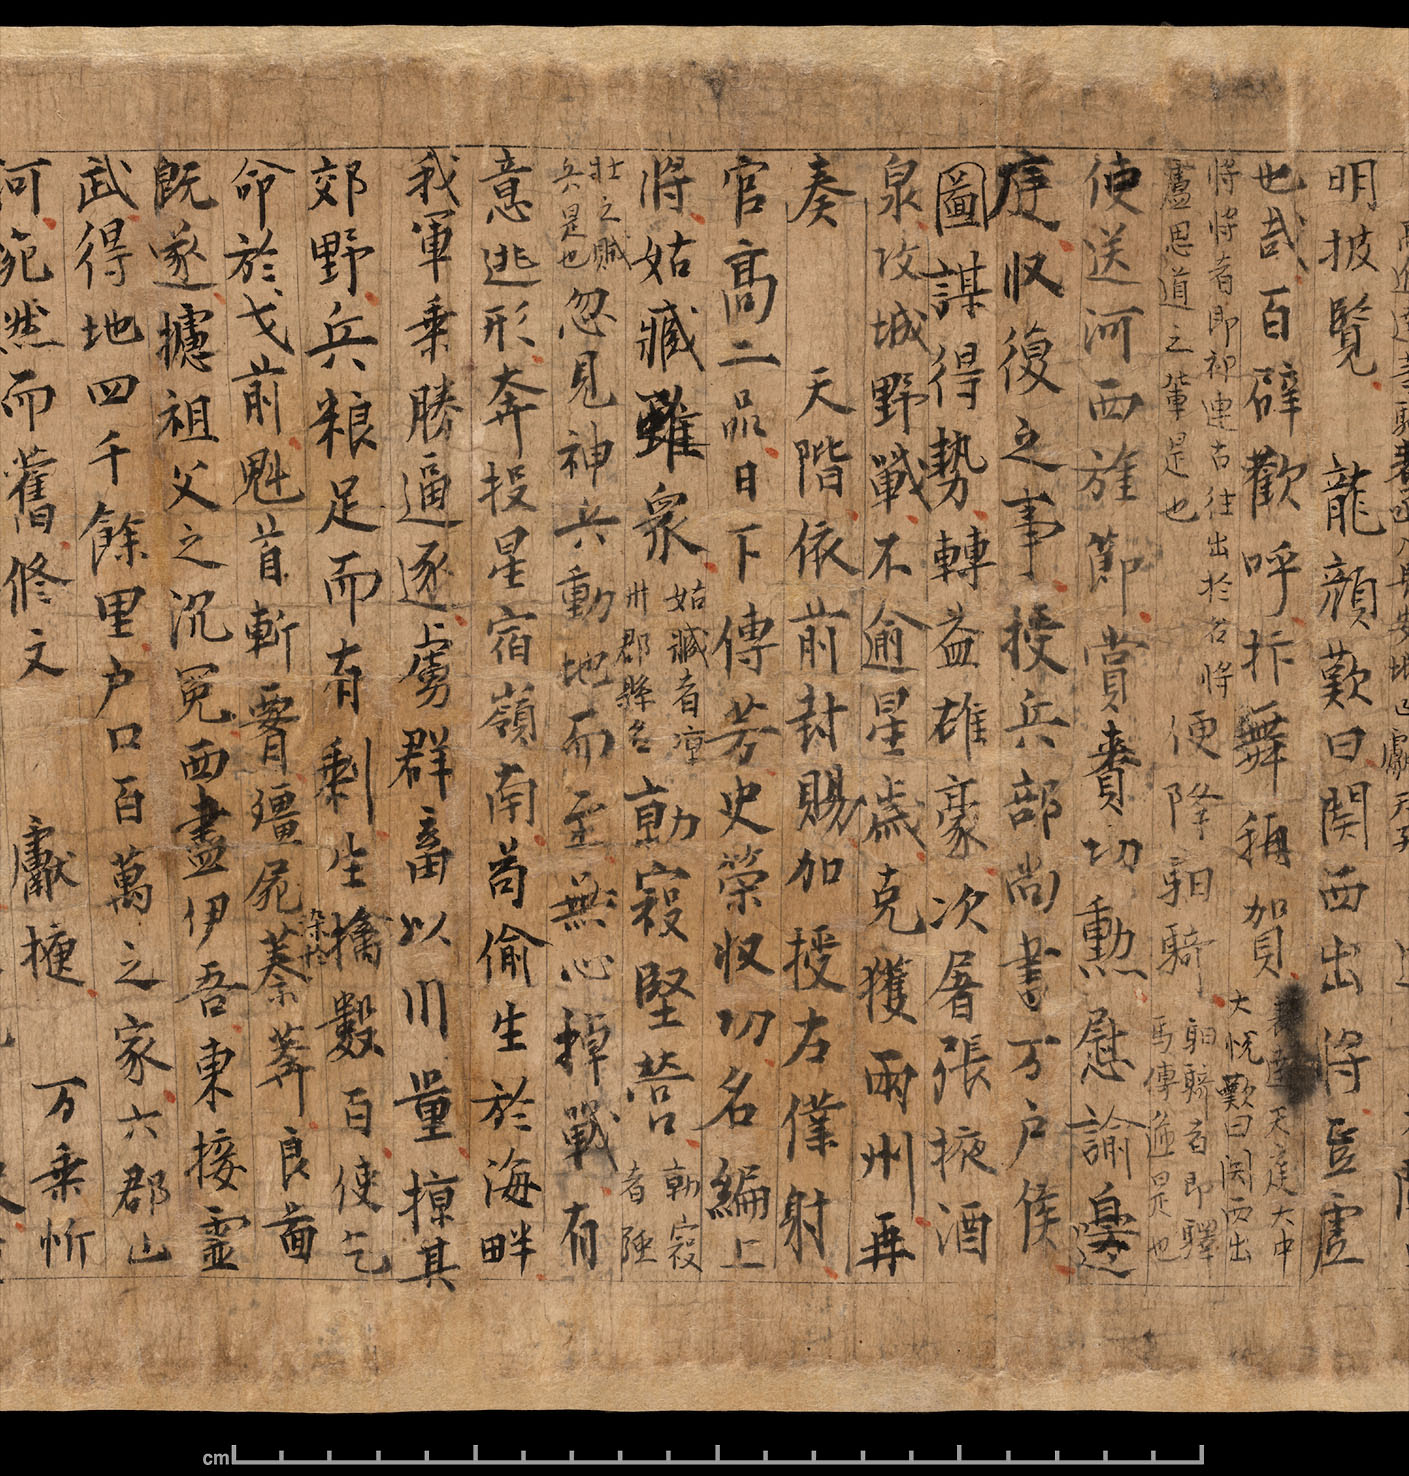 高進達等馳表函入長安城已獻天子
明披覽 龍顏歎曰関西出將豈虛
也哉百辟歡呼抃舞稱賀 表達天庭大中
大悅歎曰関西出
將將者即祁連古往出於名將
盧思道之輩是也 便降馹騎 馹騎者即驛
馬傳遞是也
使送河西旌節賞賚功勳慰諭邊
庭収復之事授兵部尚書万户侯
圖謀得勢轉益雄豪次屠張掖酒
泉攻城野戰不逾星歲克獲兩州再
奏 天階依前封賜加授左僕射
官髙二品日下傳芳史榮収功名編上
將姑臧雖衆 姑臧者涼
州郡縣名 勍寇堅營 勍寇
者強
壮之賊
兵是也 忽見神兵動地而至無心掉戰有
意逃形奔投星宿嶺南苟偷生於海畔
我軍乗勝逼逐虜群畜以川量掠其
郊野兵粮足而有剩生擒數百使乞
命於戈前魁首斬署殭屍 染於 蓁莾良啚
既遂攄祖父之沉冤西盡伊吾東接靈
武得地四千餘里户口百萬之家六郡山
河宛然而舊修文 獻捷 万乗忻